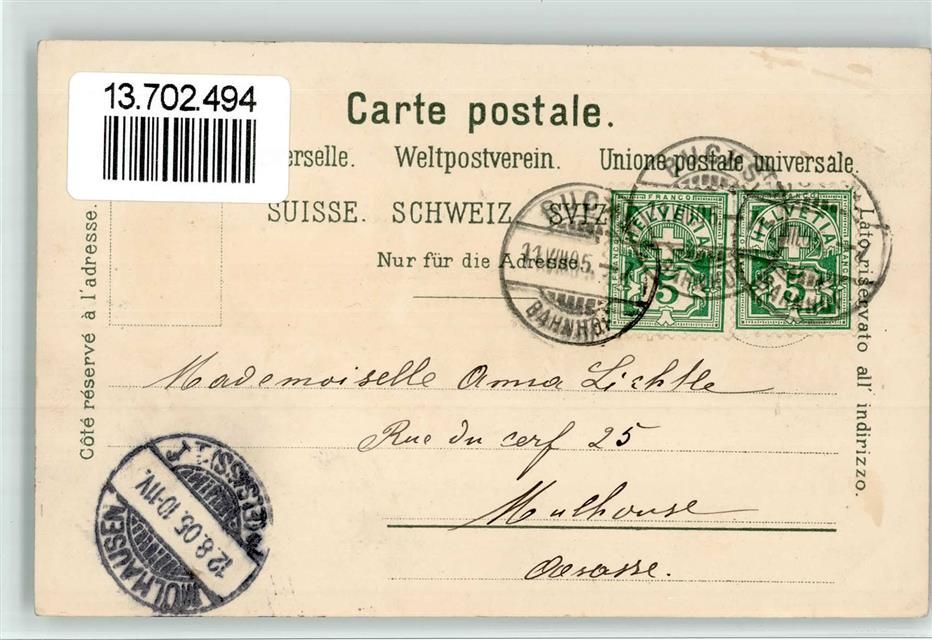 13.702.494
Carte postale.
erselle. Weltpostverein. Unione postale universale.
SUISSE. SCHWEIZ. SVIZ
Nur für die Adresse.
Côté réservé à l'adresse.
Lato riservato all' indirizzo.
11.VIII.05.
BAHNHOF
FRANCO
HELVETIA
5
FRANCO
HELVETIA
5
Mademoiselle Anna Lichtle
Rue du cerf 25
Mulhouse
Alsasse.
MÜLHAUSEN
12.8.05.10-11V.